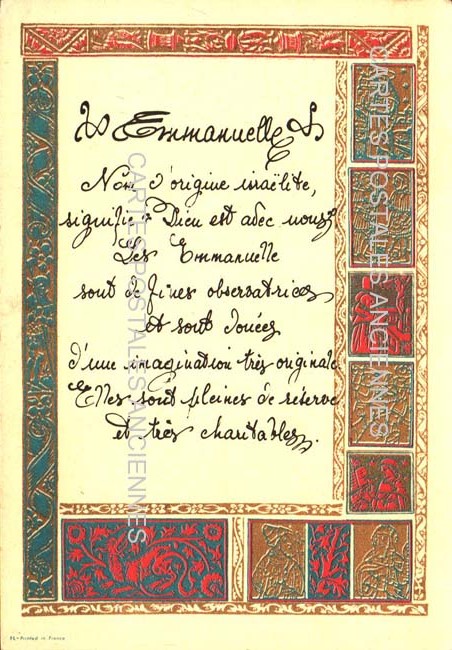 Emmanuelle
Nom d'origine israëlite,
signifie : "Dieu est avec nous".
Les Emmanuelle
sont de fines observatrices
et sont douées
d'une imagination très originale.
Elles sont pleines de réserve
et très charitables.
CARTES POSTALES ANCIENNES
CARTES POSTALES ANCIENNES
Printed in France